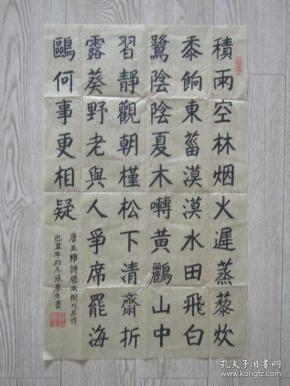 積雨空林烟火遲蒸藜炊
黍餉東菑漠漠水田飛白
鷺陰陰夏木囀黃鸝山中
習靜觀朝槿松下清齋折
露葵野老與人爭席罷海
鷗何事更相疑
唐王維詩積雨輞川莊作
己丑年初冬張書
孔夫子旧书网